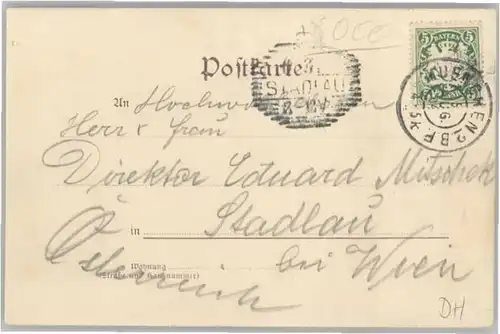 5 BAYERN 5
Postkarte
STADLAU
MUENCHEN 2 B.F.
An
Herr & Frau
Direktor Eduard Mitschek
in Stadlau
bei Wien
Wohnung
(Straße und Hausnummer)
Österreich
DH